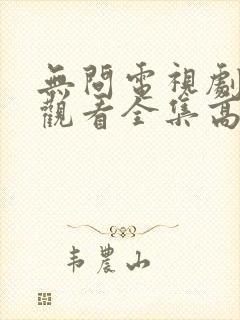 無間電視劇
觀看全集高
韦農山